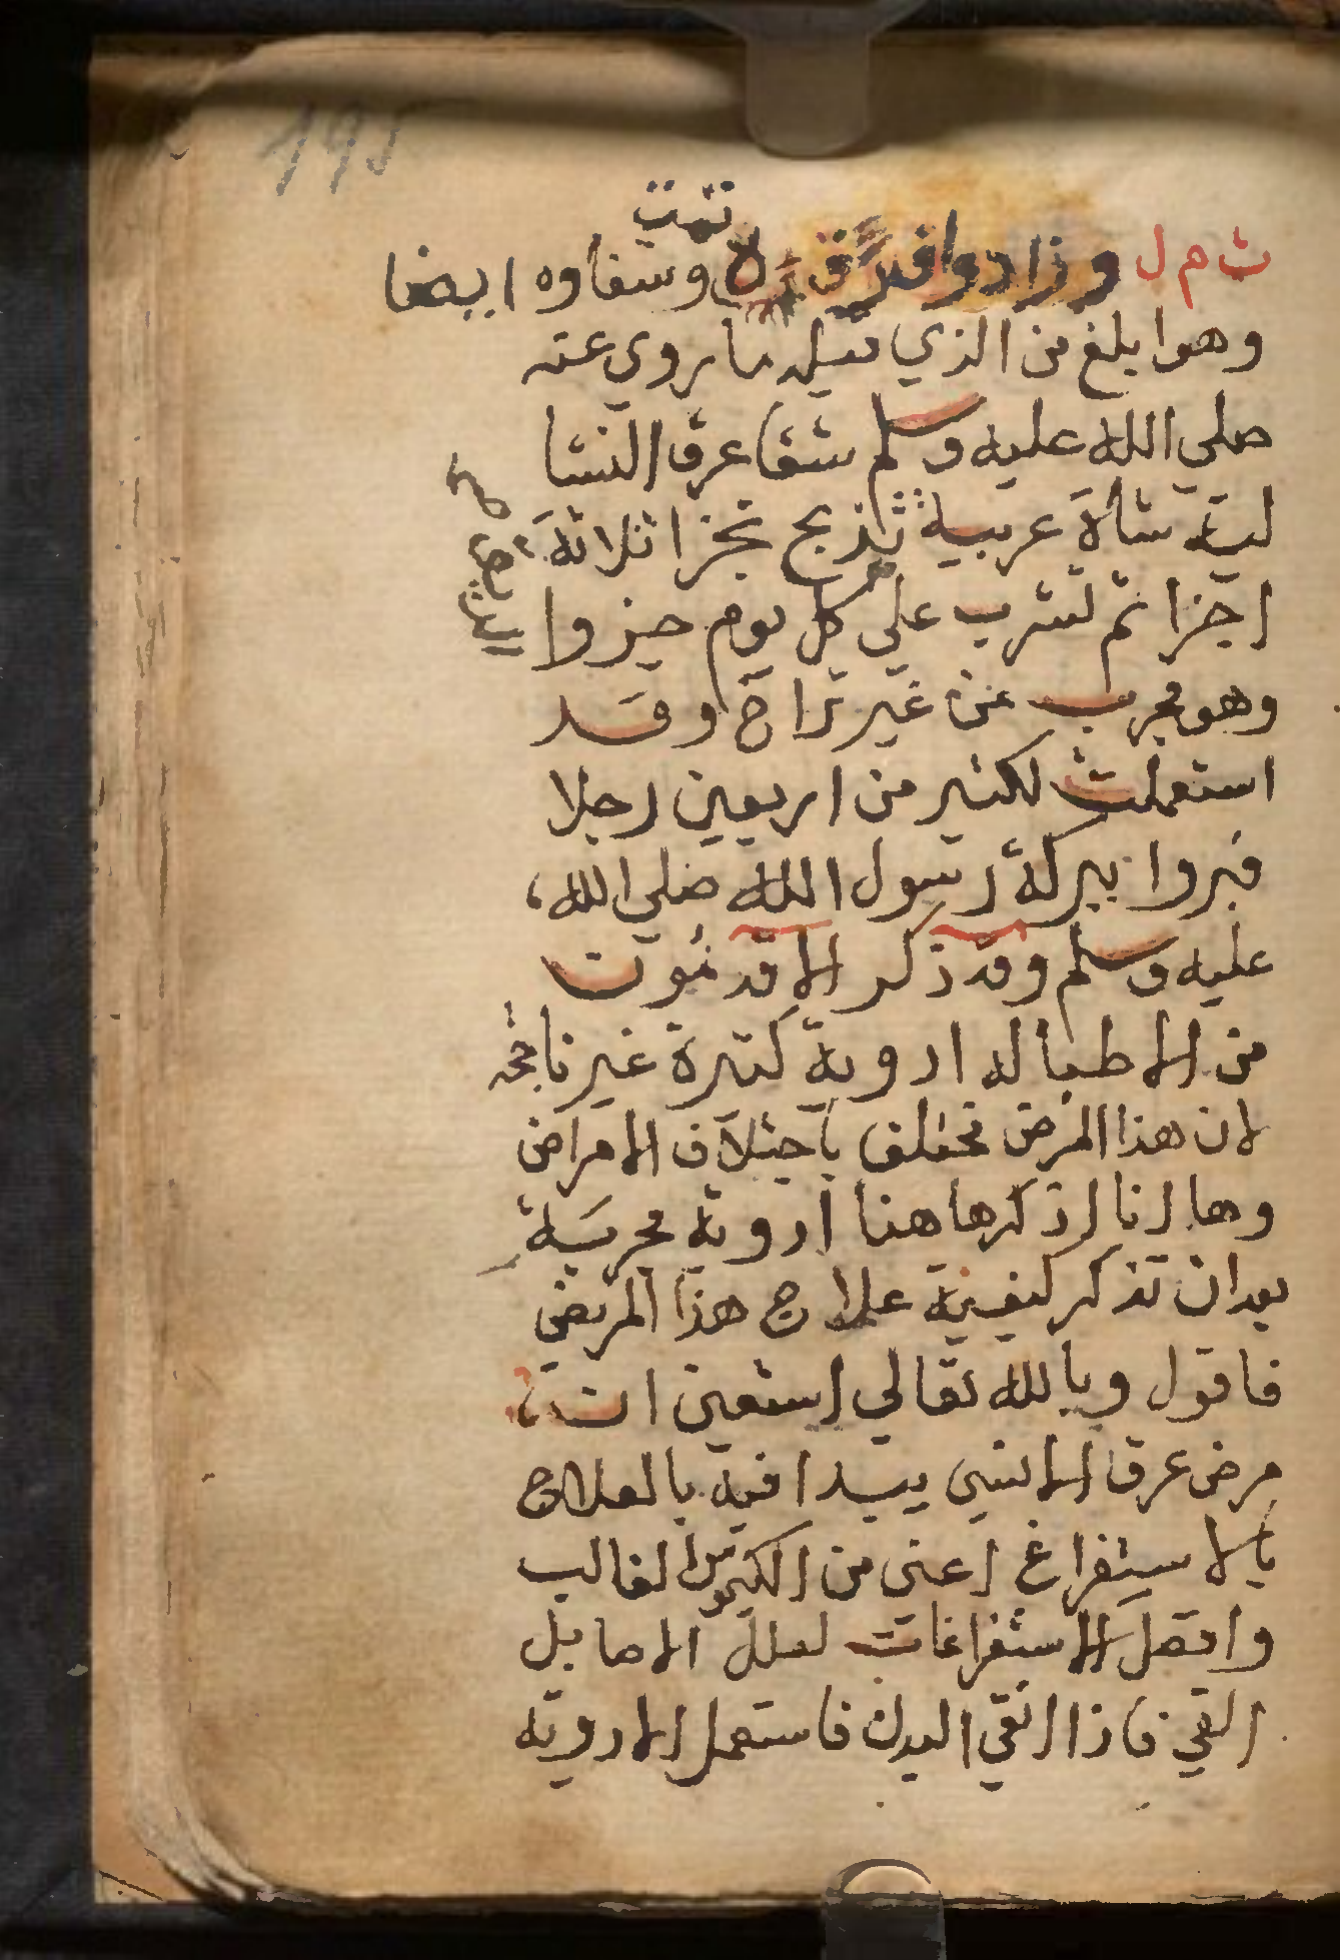 195
تمت
ث م ل وزاد وافر وشفاوه ايضا
وهو ابلغ من الذي قبله ما روي عنه
صلي الله عليه وسلم شفا عرق النسا
لية شاة عربية تذبح تجزا ثلاثة
اجزا ثم تشرب علي كل يوم جزوا
وهو مجرب من غير تراح وقد
استعملت لكثير من اربعين رجلا
فبروا ببركة رسول الله صلي الله
عليه وسلم وقد ذكر الاقدمون
من الاطبا له ادوية كثيرة غير ناجحه
لان هذا المرض مختلف باختلاف الامراض
وها انا اذكر هاهنا ادوية مجربة
بعد ان تذكر كيفية علاج هذا المرض
فاقول وبالله تعالي استعين ان
مرض عرق الانسي يبدا فيه بالعلاج
بالاستفراغ اعني من الكيموس الغالب
وافضل الاستفراغات لعلل المفاصل
القي فاذا انقي البدن فاستعمل الادوية